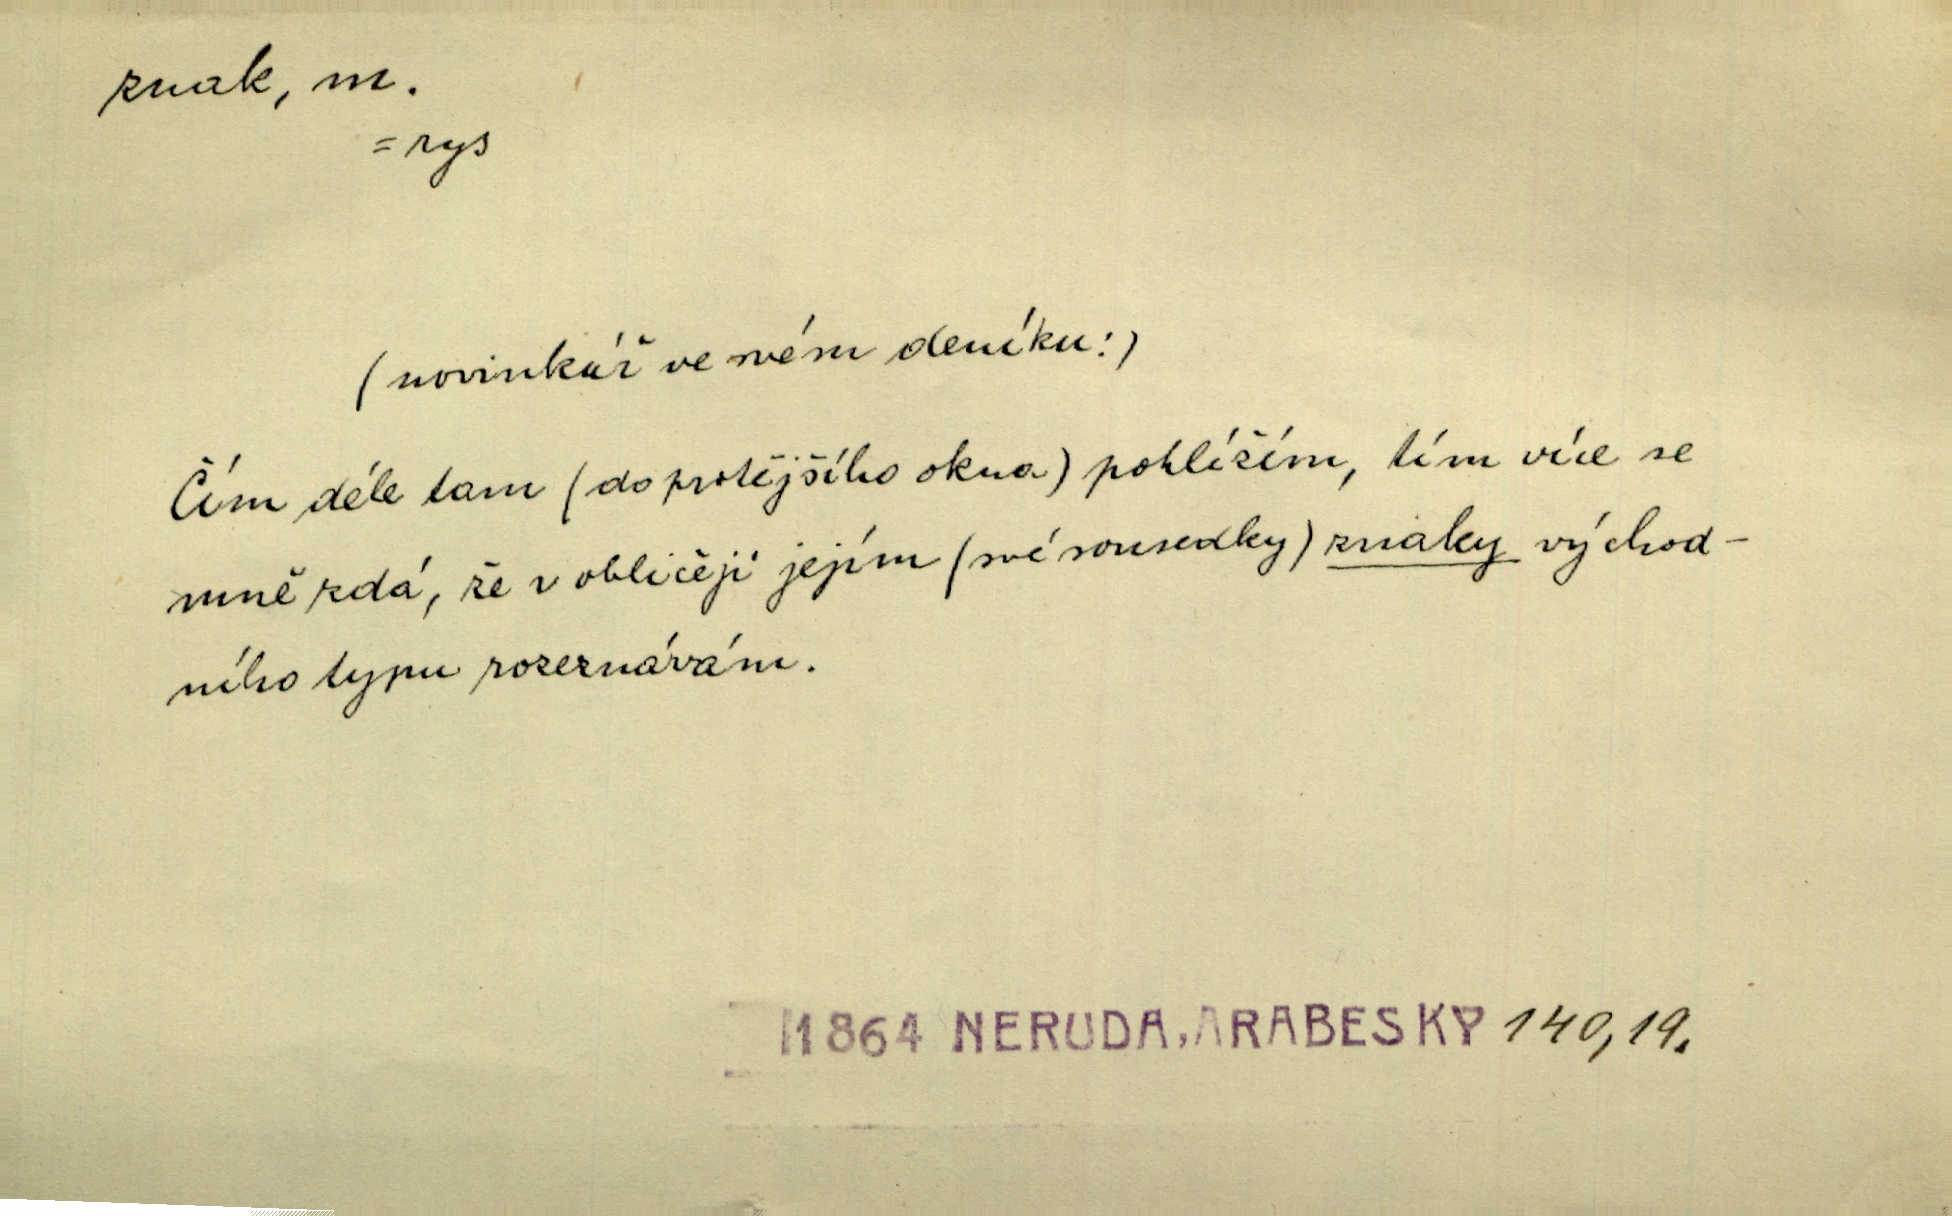 znak, m.
= rys
(novinkář ve svém deníku:)
Čím déle tam (do protějšího okna) pohlížím, tím více se
mně zdá, že v obličeji jejím (své sousedky) znaky východ-
ního typu rozeznávám.
1864 NERUDA, ARABESKY 140,19.